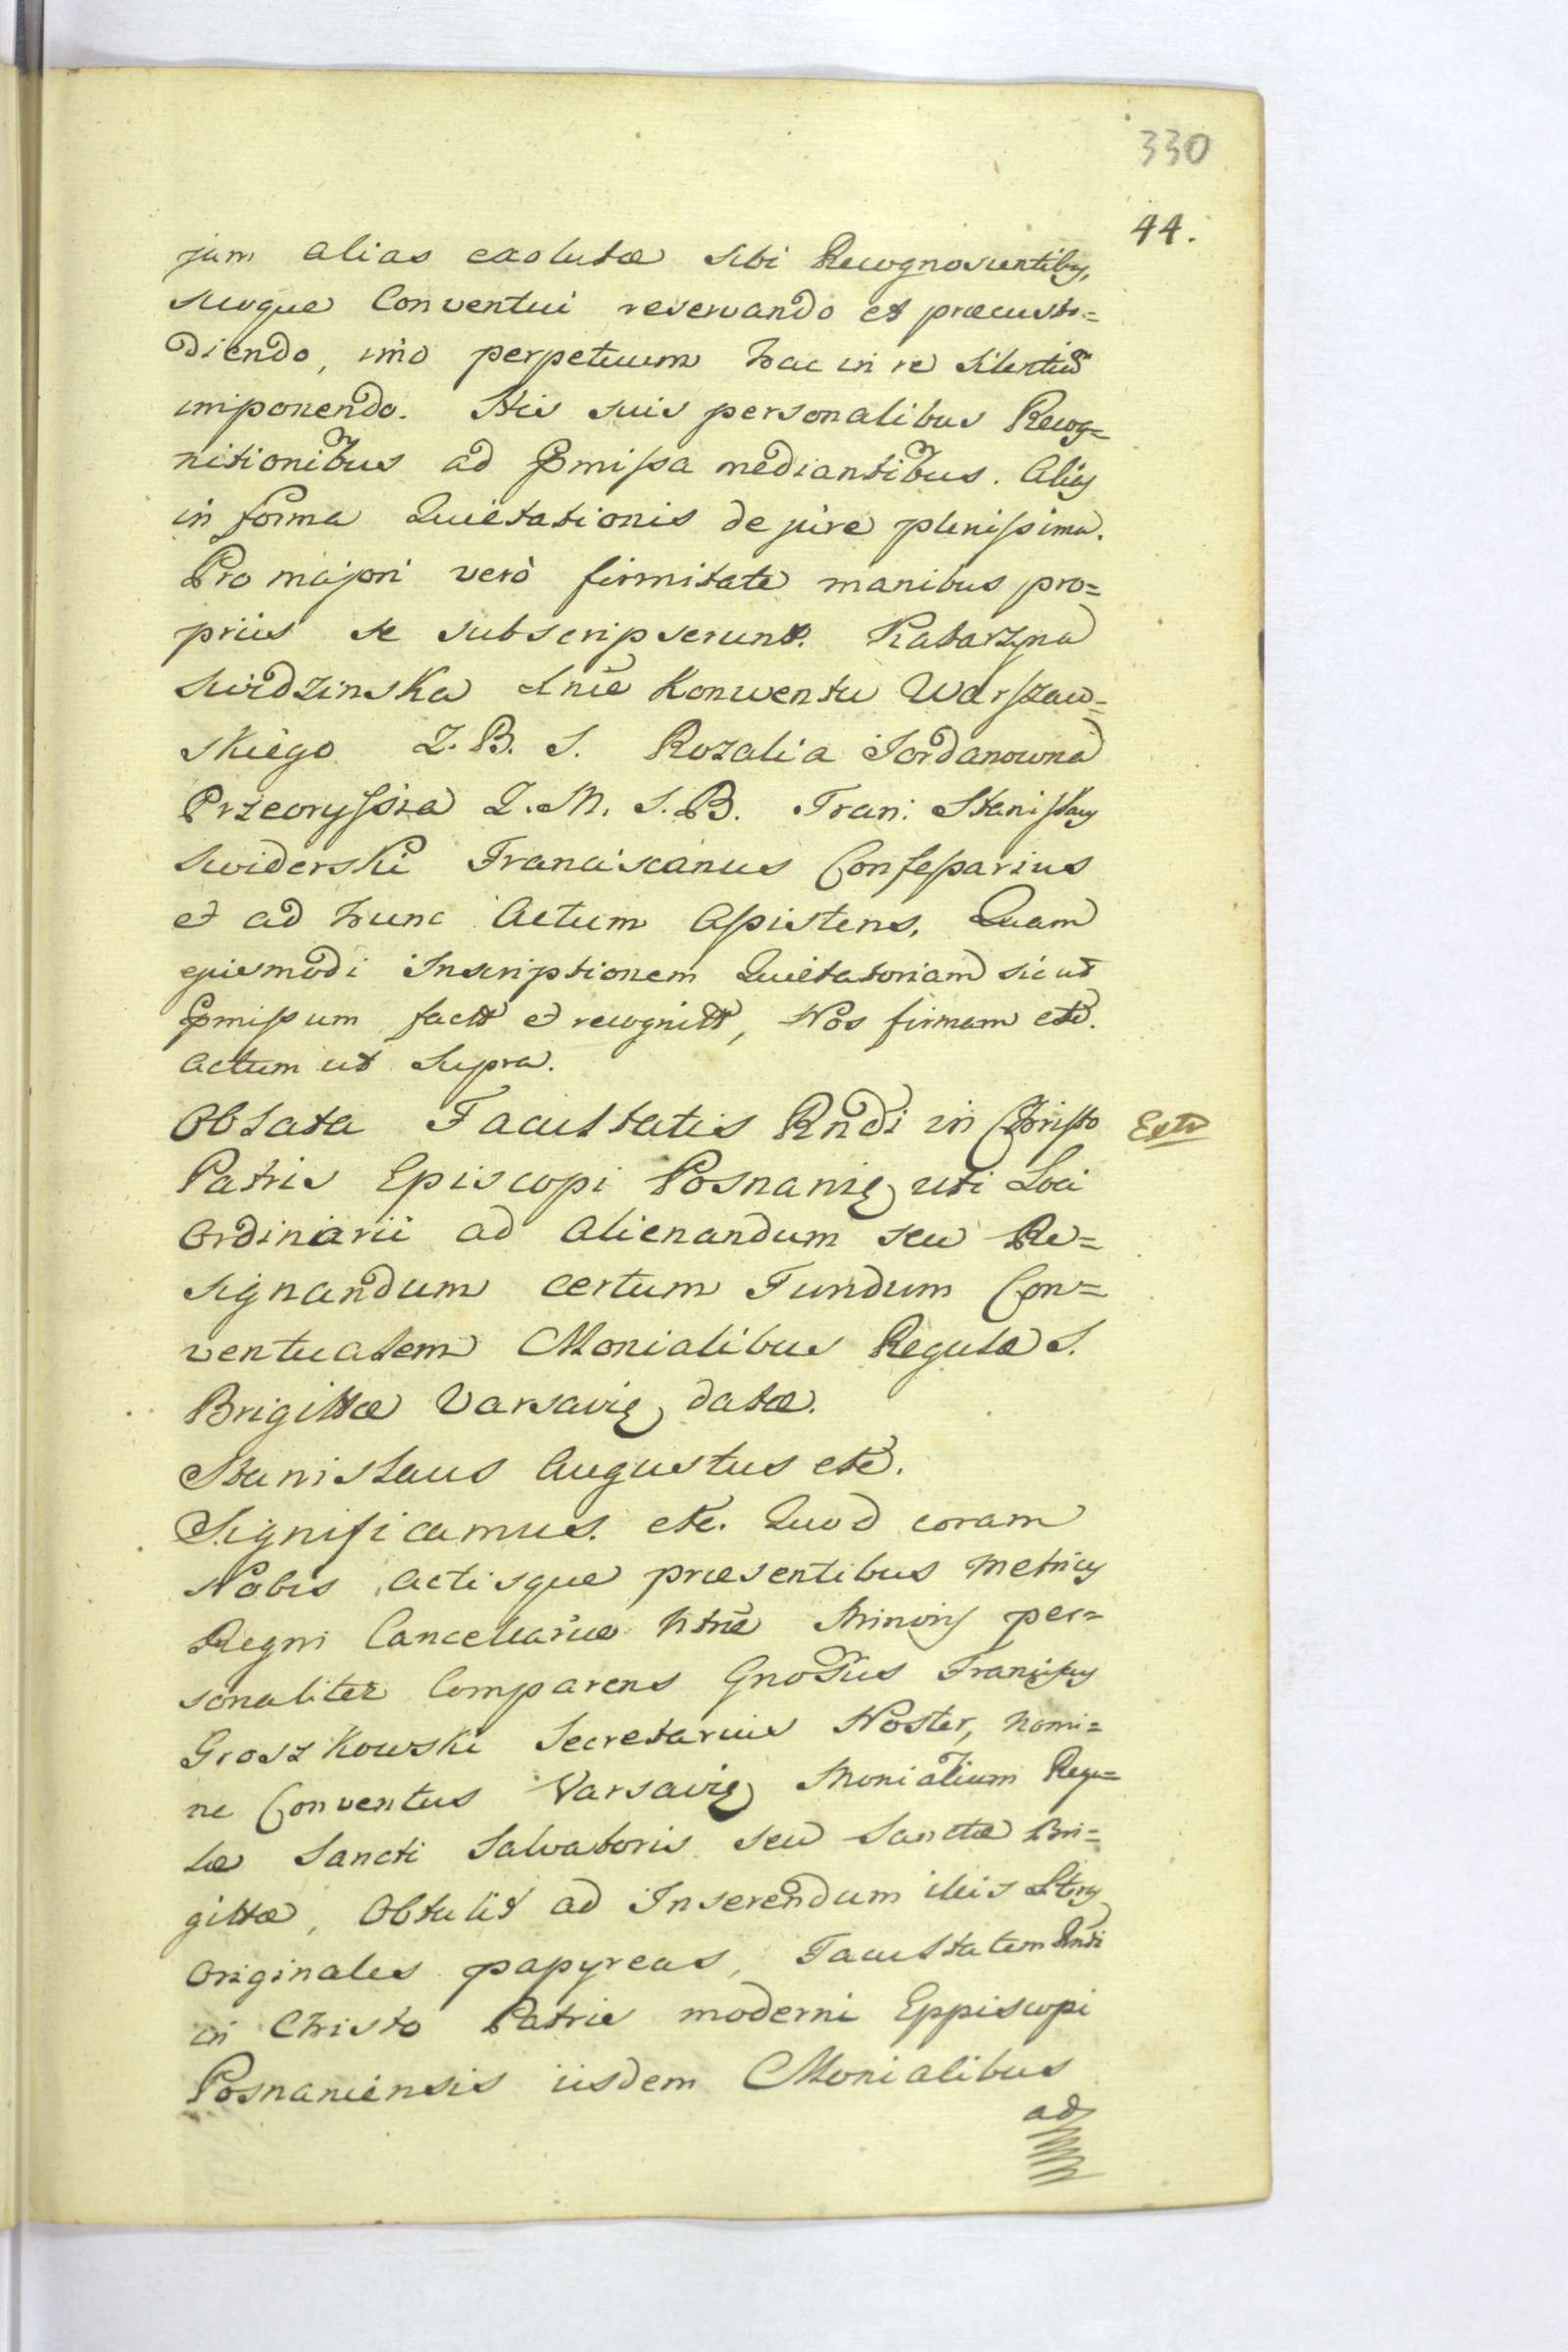 330
44.
jam alias exolutæ sibi Recognoscentibq,
suoque Conventui reservando et præcusto=
diendo, imo perpetuum hac in re silentiũ
imponendo. His suis personalibus Recog=
nitionibus ad præmissa mediantibus. Alijs
in forma Quietationis de jure plenissima.
Pro majori verò firmitate manibus pro=
priis se subscripserunt. Katarzyna
Swidzinska Xnie Konwentu Warszaw=
skiego Z. B. S. Rozalia Jordanowna
Przeoryssza Z. M. S. B. Fran: Stanislaus
Swiderski Franciscanus Confessarius
et ad hunc Actum Assistens. Quam
ejusmodi Inscriptionem Quietatoriam sic ut
præmissum factt et recognitt, Nos firmam etc.
Actum ut Supra.
Oblata Facultatis Rndi in Christo
Extr
Patris Episcopi Posnanię uti Loci
Ordinarii ad Alienandum seu Re=
signandum certum Fundum Con=
ventualem Monialibus Regulæ S.
Brigittæ Varsavię datæ.
Stanislaus Augustus etc.
Significamus. etc. Quod coram
Nobis Actisque præsentibus Metrices
Regni Cancellariæ Ntræ Minoris per=
sonaliter Comparens Gnosus Franciscus
Groszkowski Secretarius Noster, nomi=
ne Conventus Varsavię Monialium Regu=
læ Sancti Salvatoris seu Sanctæ Bri=
gittæ, Obtulit ad Inserendum illis Ltras
Originales papyreas, Facultatem Rndi
in Christo Patris moderni Eppiscopi
Posnaniensis iisdem Monialibus
ad